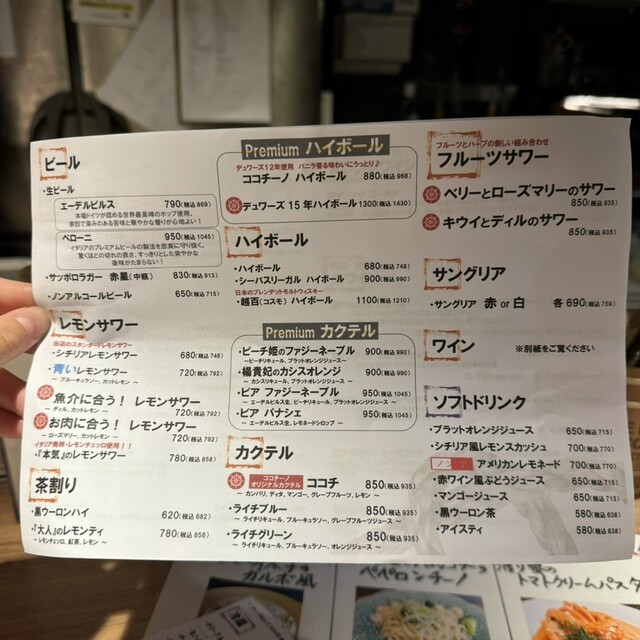 ビール
・生ビール
エーデルピルス 790(税込 869)
本場ドイツが認める世界最高峰のホップ使用、
爽烈で深みのある苦味と華やかな香りが心地よい！
ペローニ 950(税込 1045)
イタリアのプレミアムビールの製法を忠実に守り抜く、
驚くほどの切れの良さ、すっきりとした爽やかな
後味がたまらない！
・サッポロラガー 赤星(中瓶) 830(税込 913)
・ノンアルコールビール 650(税込 715)
レモンサワー
当店のスタンダードレモンサワー
・シチリアレモンサワー 680(税込 748)
・青いレモンサワー 720(税込 792)
～ ブルーキュラソー、カットレモン ～
魚介に合う！ レモンサワー
～ ディル、カットレモン ～ 720(税込 792)
お肉に合う！ レモンサワー
～ ローズマリー、カットレモン ～ 720(税込 792)
イタリア発祥・レモンチェッロ使用！！
・『本気』のレモンサワー 780(税込 858)
茶割り
・黒ウーロンハイ 620(税込 682)
・『大人』のレモンティ 780(税込 858)
～ レモンチェッロ、紅茶、レモン ～
Premium ハイボール
デュワーズ12年使用 バニラ香る味わいにうっとり♪
ココチーノ ハイボール 880(税込 968)
デュワーズ 15年ハイボール 1300(税込 1430)
ハイボール
・ハイボール 680(税込 748)
・シーバスリーガル ハイボール 900(税込 990)
日本のブレンデットモルトウィスキー
・越百(コスモ) ハイボール 1100(税込 1210)
Premium カクテル
・ピーチ姫のファジーネーブル 900(税込 990)
～ ピーチリキュール、ブラットオレンジジュース ～
・楊貴妃のカシスオレンジ 900(税込 990)
～ カシスリキュール、ブラットオレンジジュース ～
・ビア ファジーネーブル 950(税込 1045)
～ エーデルピルス生、ピーチリキュール、ブラットオレンジジュース ～
・ビア パナシェ 950(税込 1045)
～ エーデルピルス生、レモネードシロップ ～
カクテル
ココチーノ
オリジナルカクテル ココチ 850(税込 935)
～ カンパリ、ディタ、マンゴー、グレープフルーツ、レモン ～
・ライチブルー 850(税込 935)
～ ライチリキュール、ブルーキュラソー、グレープフルーツジュース ～
・ライチグリーン 850(税込 935)
～ ライチリキュール、ブルーキュラソー、オレンジジュース ～
フルーツとハーブの新しい組み合わせ
フルーツサワー
ベリーとローズマリーのサワー
850(税込 935)
キウイとディルのサワー
850(税込 935)
サングリア
・サングリア 赤 or 白 各 690(税込 759)
ワイン ※別紙をご覧ください
ソフトドリンク
・ブラットオレンジジュース 650(税込 715)
・シチリア風レモンスカッシュ 700(税込 770)
アメリカンレモネード 700(税込 770)
・赤ワイン風ぶどうジュース 650(税込 715)
・マンゴージュース 650(税込 715)
・黒ウーロン茶 580(税込 638)
・アイスティ 580(税込 638)
カルボ風
ペペロンチーノ
トマトクリームパスタ